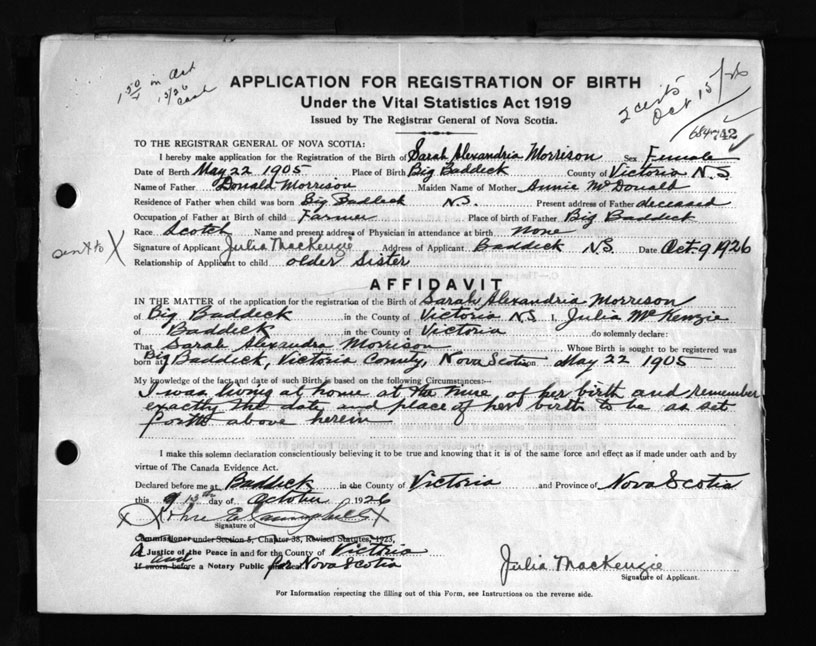 1 50/x in act
13/26
cash
APPLICATION FOR REGISTRATION OF BIRTH
Under the Vital Statistics Act 1919
Issued by The Registrar General of Nova Scotia.
2 certs Oct 15/26
742
TO THE REGISTRAR GENERAL OF NOVA SCOTIA:
I hereby make application for the Registration of the Birth of Sarah Alexandria Morrison Sex Female
Date of Birth May 22 1905 Place of Birth Big Baddeck County of Victoria N.S
Name of Father Donald Morrison Maiden Name of Mother Annie McDonald
Residence of Father when child was born Big Baddeck N.S. Present address of Father deceased
Occupation of Father at Birth of child Farmer Place of birth of Father Big Baddeck
Race Scotch Name and present address of Physician in attendance at birth none
sent to X Signature of Applicant Julia MacKenzie Address of Applicant Baddeck N.S. Date Oct. 9 1926
Relationship of Applicant to child older Sister
AFFIDAVIT
IN THE MATTER of the application for the registration of the Birth of Sarah Alexandria Morrison
of Big Baddeck in the County of Victoria N.S I, Julia McKenzie
of Baddeck in the County of Victoria do solemnly declare:
That Sarah Alexandra Morrison Whose Birth is sought to be registered was
born at Big Baddeck, Victoria County, Nova Scotia on May 22 1905
My knowledge of the fact and date of such Birth is based on the following Circumstances:—
I was living at home at the time of her birth and remember
exactly the date and place of her birth to be as set
forth above herein
I make this solemn declaration conscientiously believing it to be true and knowing that it is of the same force and effect as if made under oath and by
virtue of The Canada Evidence Act.
Declared before me at Baddeck in the County of Victoria and Province of Nova Scotia
this 13th day of October 1926
X X
Signature of
Commissioner under Section 5, Chapter 38, Revised Statutes, 1923,
A Justice of the Peace in and for the County of Victoria
If sworn before a Notary Public and for Nova Scotia
Julia MacKenzie
Signature of Applicant.
For Information respecting the filling out of this Form, see Instructions on the reverse side.